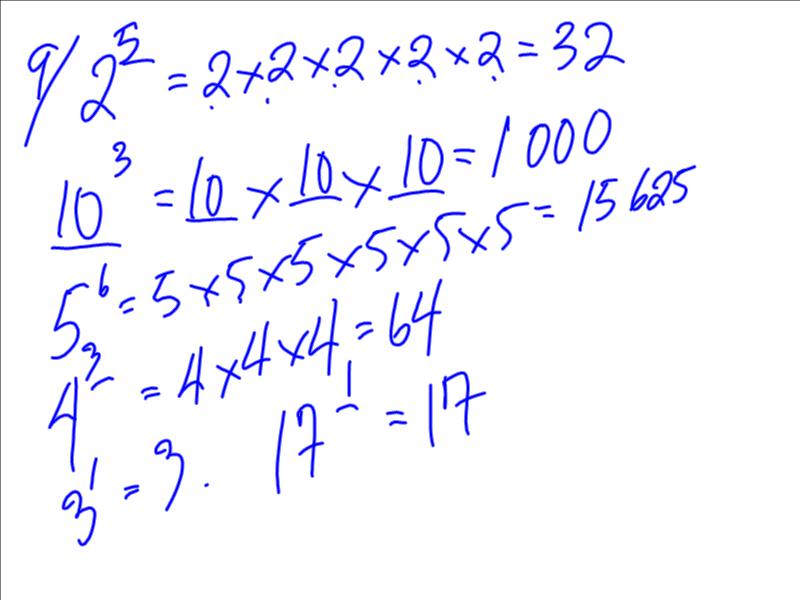 9/ 2⁵ = 2 × 2 × 2 × 2 × 2 = 32
10³ = 10 × 10 × 10 = 1 000
5⁶ = 5 × 5 × 5 × 5 × 5 × 5 = 15 625
4³ = 4 × 4 × 4 = 64
3¹ = 3. 17¹ = 17